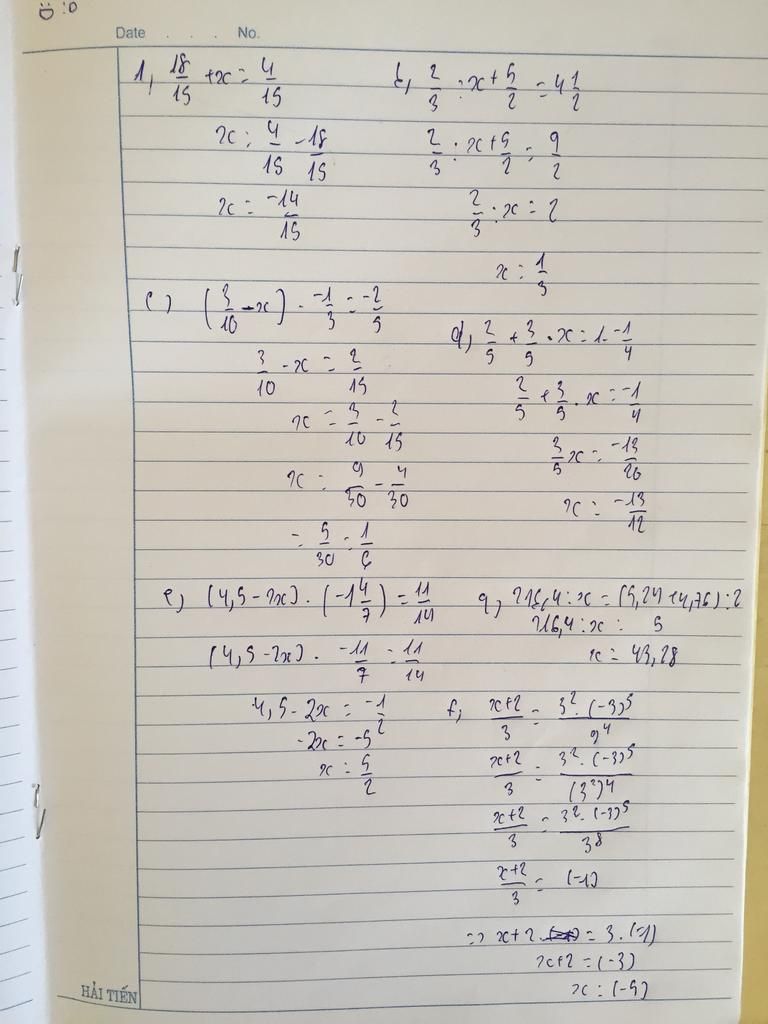 Date . . . No.
1, 18/15 + x = 4/15
x = 4/15 - 18/15
x = -14/15
b, 2/3 : x + 5/2 = 4 1/2
2/3 : x + 5/2 = 9/2
2/3 : x = 2
x = 1/3
c) (3/10 - x) . -1/3 = -2/5
3/10 - x = 2/15
x = 3/10 - 2/15
x = 9/30 - 4/30
= 5/30 = 1/6
d, 2/5 + 3/5 . x = 1 . -1/4
2/5 + 3/5 . x = -1/4
3/5 x = -13/20
x = -13/12
e, (4,5 - 2x) . (-1 4/7) = 11/14
(4,5 - 2x) . -11/7 = 11/14
4,5 - 2x = -1/2
-2x = -5
x = 5/2
g, 216,4 : x = (5,24 + 4,76) : 2
216,4 : x = 5
x = 43,28
f, x+2/3 = 3² . (-3)⁵/9⁴
x+2/3 = 3² . (-3)⁵/(3²)⁴
x+2/3 = 3² . (-3)⁵/3⁸
x+2/3 = (-1)
=> x+2 = 3 . (-1)
x+2 = (-3)
x = (-5)
HẢI TIẾN